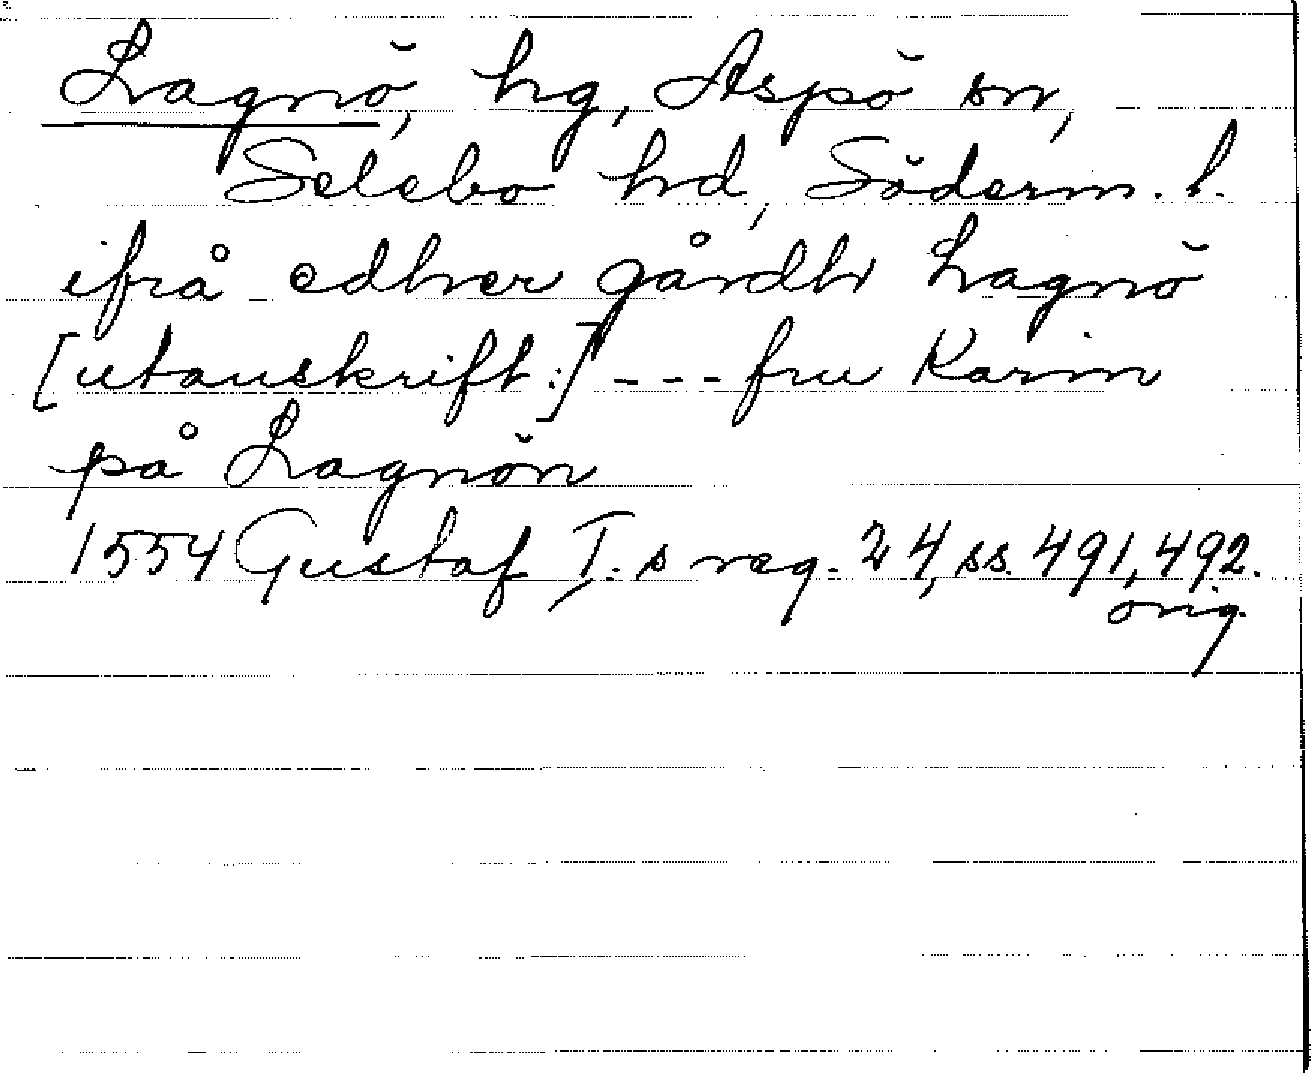 Lagnö, hg, Aspö sn,
Selebo hd, Söderm. l.
ifrå edher gårdh Lagnö
[utanskrift:] --- fru Karin
på Lagnön
1554 Gustaf I.s reg. 24, ss. 491, 492.
orig.